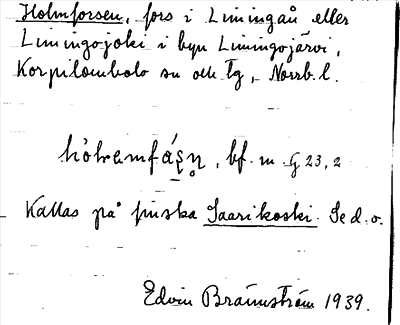 Holmforsen, fors i Liningaå eller
Liningojoki i byn Liningojärvi,
Korpilombolo sn och tg, Norrb. l.
bf. m. G 23, 2
Kallas på finska Saarikoski. Se d. o.
Edvin Brännström 1939.